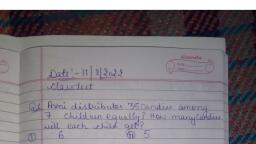 Date:- 11/3/2022
Classtest
Q1. Avni distributes 35 Candies among
7 children equally? How many Candies
will each child get?
① 6 ② 5